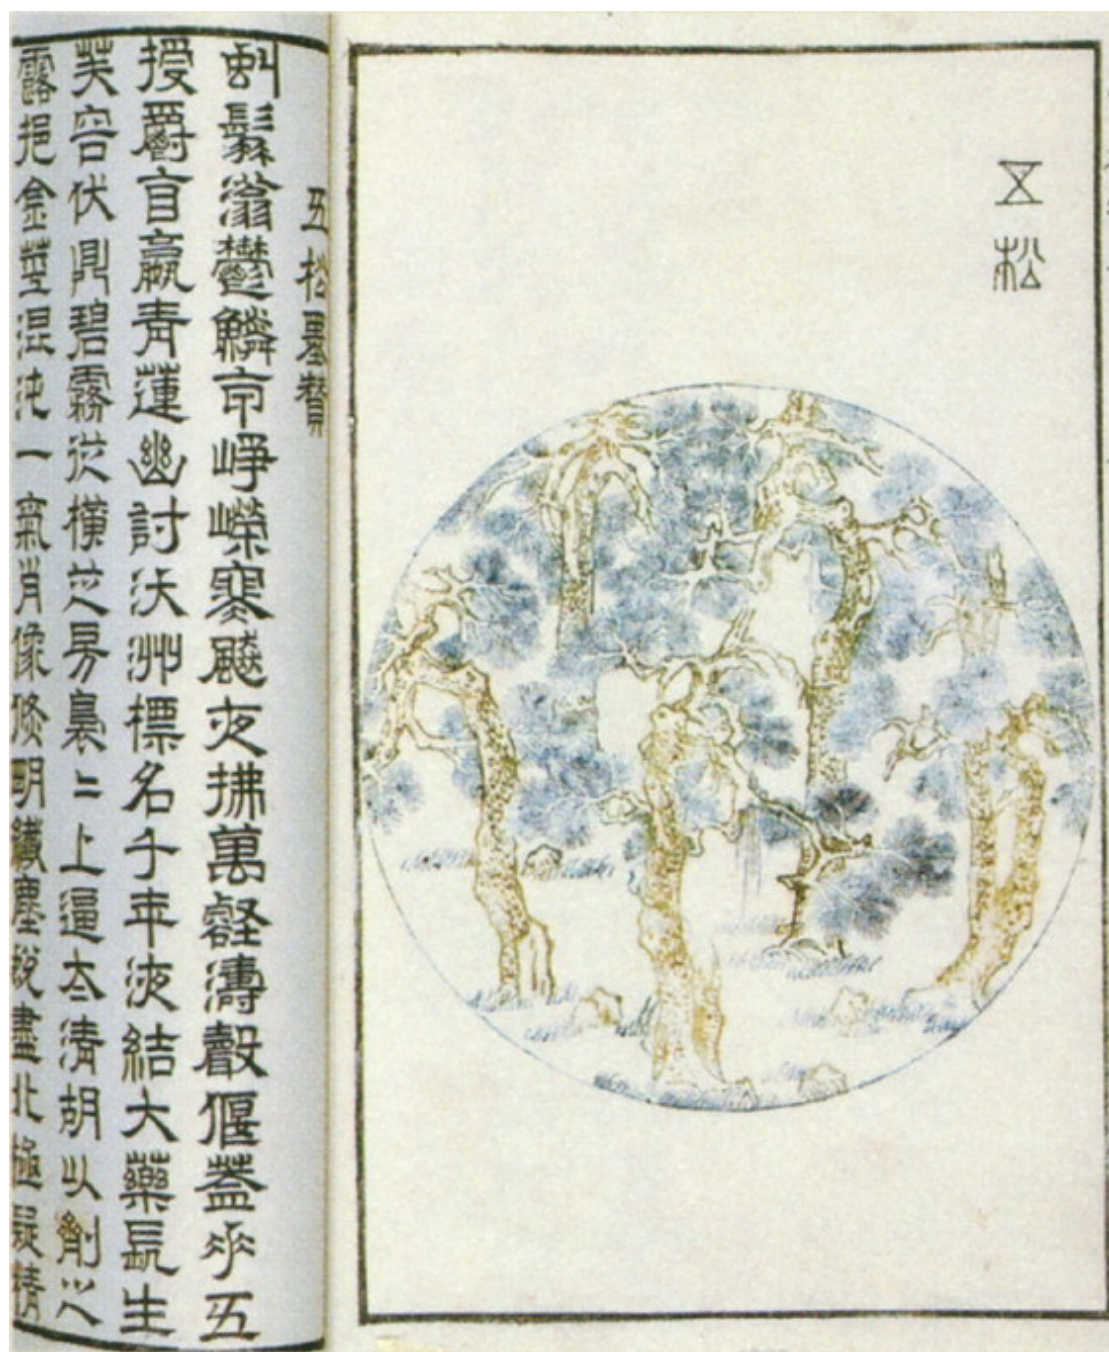 五松
五松墨贊
虯滃鬱鱗崢嶸寒飇夜拂萬壑濤聲偃蓋五
授爵自嬴青蓮幽討沃洲標名千年液結大藥長生
芙容伏鼎碧霧從橫芝房裊二上逼太清胡以劑之
露挹金莖混沌一氣肖像倐明纖塵蛻盡北極凝精